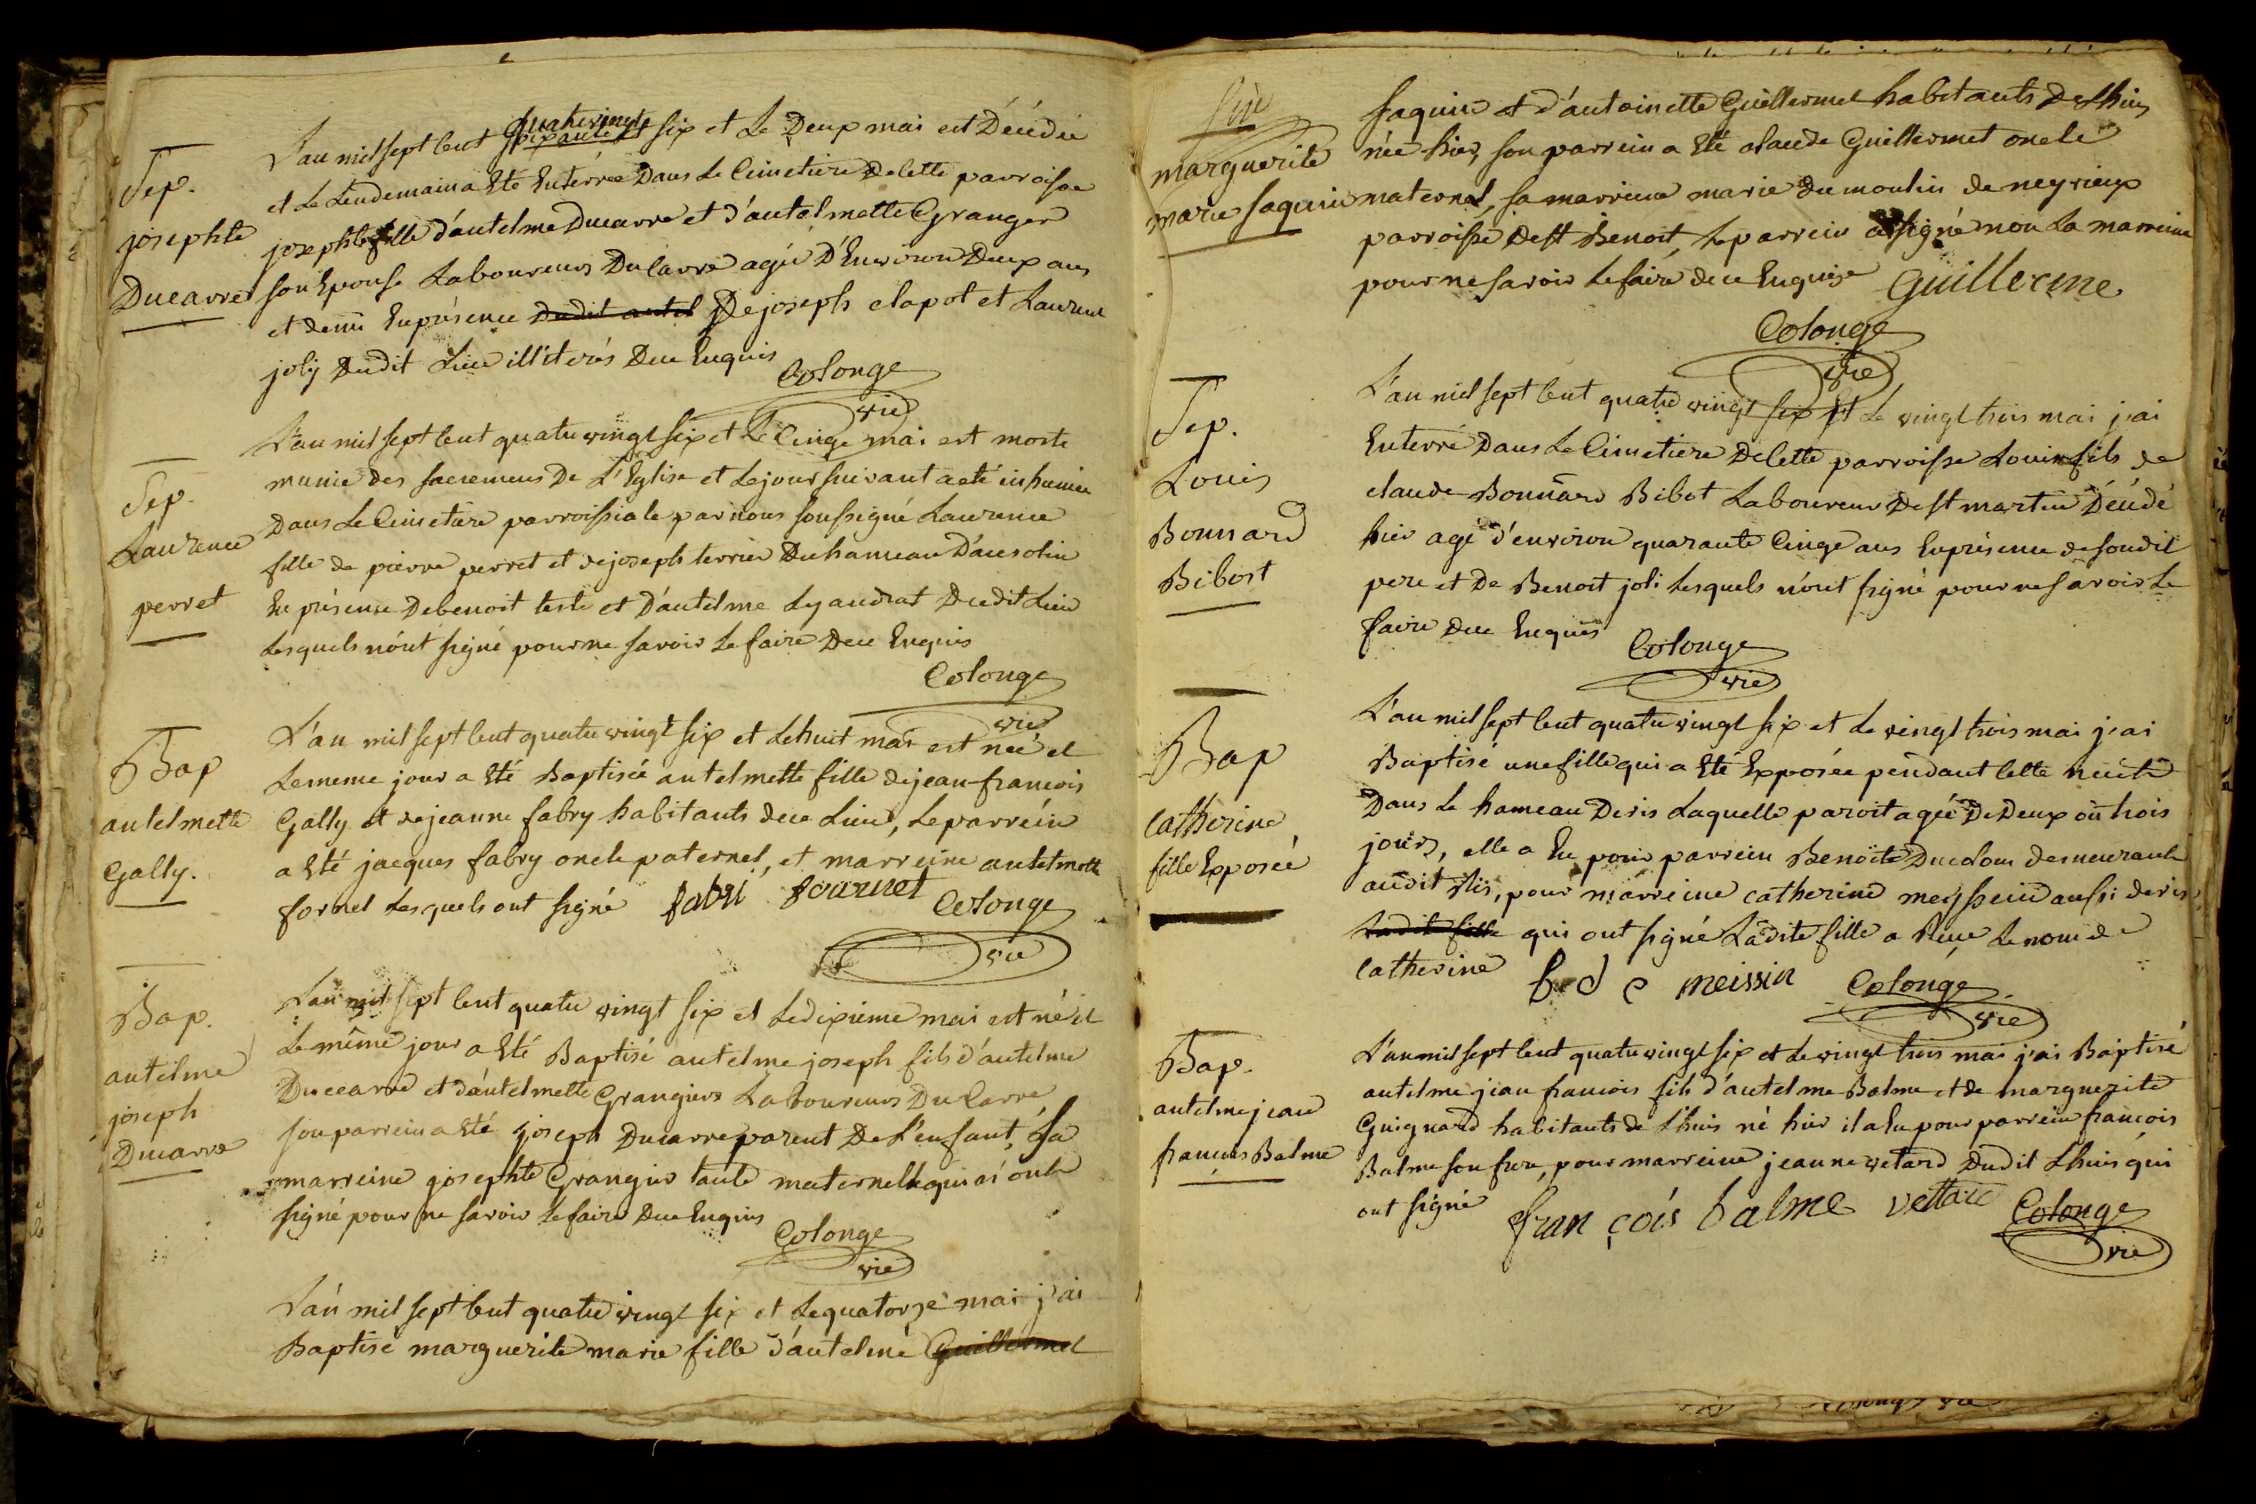 Sep.
josephte
Ducarre
L'an mil sept cent quatrevingt
soixante et six et le Deux mai est Décédée
et le lendemain a Eté Enterrée Dans le Cimetiere De cette parroisse
josephte fille d'antelme Ducarre et d'antelmette Granger
son Epouse Laboureurs Du Carre agée D'Environ Deux ans
et demi En présence dudit antel De joseph clapot et Laurent
joly Dudit Lieu illiterés De ce Enquis
Colonge
vic
Sep.
Laurence
perret
L'an mil sept cent quatre vingt Six et Le Cinqe mai est morte
munie des sacremens De L'Eglise et le jour suivant a eté inhumée
Dans Le Cimetiere parroissiale par nous soussigné Laurence
fille de pierre perret et de joseph terrier Du hameau D'ansolin
En présence De benoit teste et D'antelme Leyaudrat Dudit Lieu
Lesquels n'ont signé pour ne savoir Le faire De ce Enquis
Colonge
vic
Bap
antelmette
Gally.
L'an mil sept cent quatre vingt six et le huit mai est née et
Le meme jour a Eté Baptisée antelmette fille de jean francois
Gally et de jeanne fabry habitants de ce Lieu, Le parrein
a Eté jacques fabry oncle paternel, et marreine antelmette
fornet Lesquels ont signé fabri fournet Colonge
vic
Bap.
antelme
joseph
Ducarre
L'an mil sept cent quatre vingt six et Le dixième mai est né et
Le même jour a Eté Baptisé antelme joseph fils d'antelme
Duccarre et d'antelmette Grangier Laboureurs Du Carre
son parrein a Eté joseph Ducarre parent De L'enfant, sa
marreine josephte Grangier tante maternelle qui n'ont
signé pour ne savoir Le faire De ce Enquis
Colonge
vic
L'an mil sept cent quatre vingt six et Le quatorze mai j'ai
Baptisé marguerite marie fille d'antelme Guillermet
marguerite
marie saquin
saquin et d'antoinette Guillermet habitants De Lhuis
née hier, son parrein a Eté claude Guillermet oncle
maternel, sa marreine marie dumoulin de neyrieux
parroisse De St Benoit Le parrein a signé non La marreine
pour ne savoir Le faire de ce Enquise Guillerme
Colonge
vic
Sep.
Louis
Bonnard
Bibost
L'an mil sept cent quatre vingt six et Le vingt trois mai j'ai
Enterré Dans Le Cimetiere De cette parroisse Louis fils de
claude Bonnard Bibot Laboureur De St martin Décédé
hier agé d'environ quarante Cinqe ans En présence de son dit
pere et De Benoit joli Lesquels n'ont signé pour ne savoir Le
faire De ce Enquis
Colonge
vic
Bap
Catherine
fille Exposée
L'an mil sept cent quatre vingt six et Le vingt trois mai j'ai
Baptisé une fille qui a Eté Exposée pendant Cette nuit
Dans Le hameau De ris Laquelle paroit agée De Deux ou trois
jours, elle a Eu pour parrein Benoite Ducolom demeurant
audit Ris, pour marreine catherine meyssein aussi de ris
Ladite fille qui ont signé Ladite fille a Reçue Le nom de
Catherine b d c meissin Colonge
vic
Bap.
antelme jean
francois Balme
L'an mil sept cent quatre vingt six et Le vingt trois mai j'ai Baptisé
antelme jean francois fils d'antelme Balme et de marguerite
Guignard habitants de Lhuis né hier il a Eu pour parrein francois
Balme son frere, pour marreine jeanne vetard Dudit Lhuis qui
ont signé françois balme vettare Colonge
vic